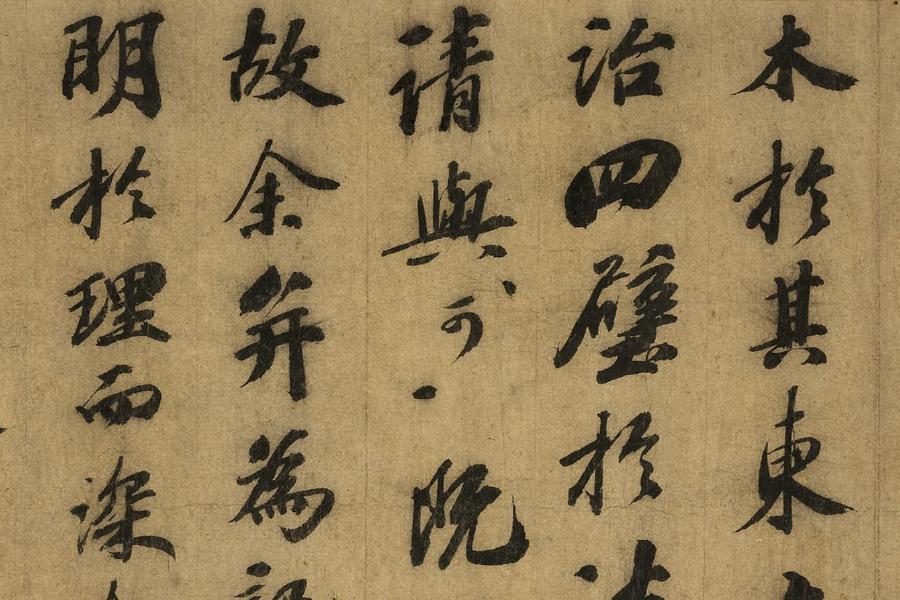 木於其東
治四壁於
請與々可々既
故余并為
明於理而深